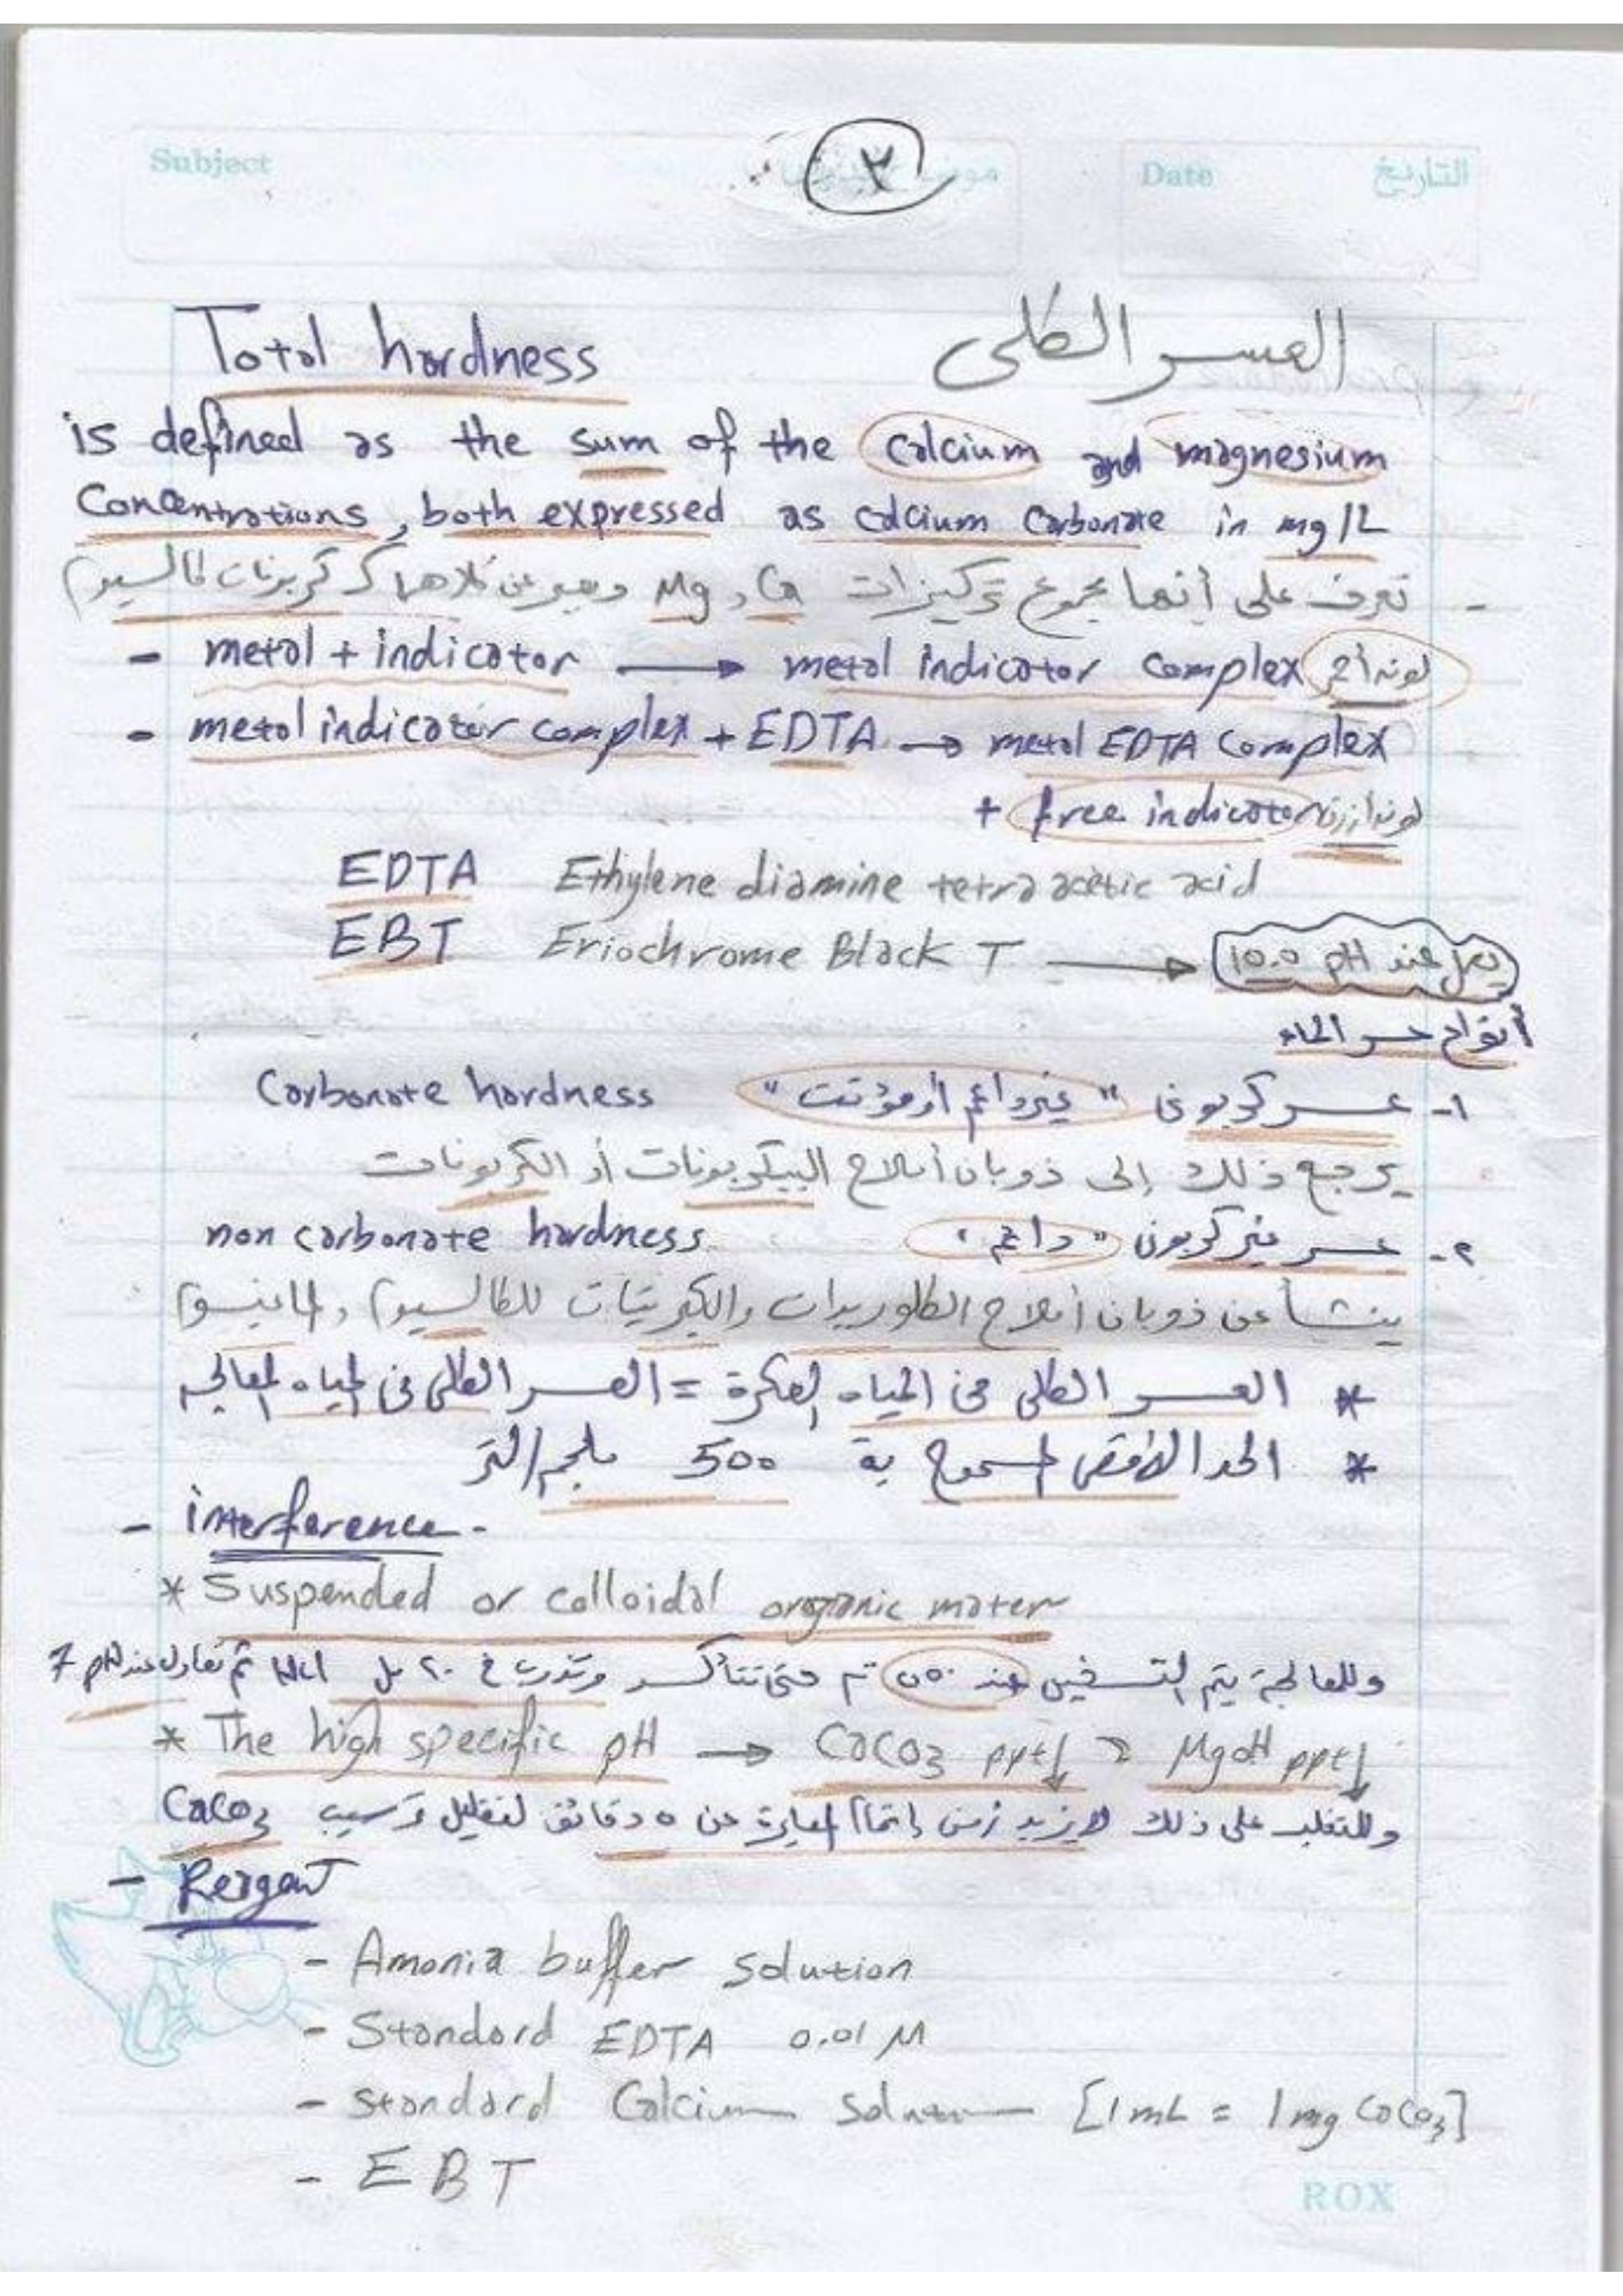 Subject
٣
Date التاريخ
Total hardness العسر الكلى
is defined as the sum of the Calcium and magnesium
Concentrations, both expressed as calcium Carbonate in mg/L
- تعرف على أنها مجموع تركيزات Ca و Mg ويعبر عن كلاهما ككربونات كالسيوم
- metal + indicator → metal indicator Complex لونه أحمر
- metal indicator complex + EDTA → metal EDTA Complex
+ free indicator لونه أزرق
EDTA Ethylene diamine tetra acetic acid
EBT Eriochrome Black T → يعمل عند pH 10.0
أنواع عسر الماء
١- عسر كربونى "غير دائم أو مؤقت" Carbonate hardness
يرجع ذلك إلى ذوبان أملاح البيكربونات أو الكربونات
٢- عسر غير كربونى "دائم" non carbonate hardness
ينشأ عن ذوبان أملاح الكلوريدات والكبريتات للكالسيوم والماغنسيوم
* العسر الكلى فى المياه العكرة = العسر الكلى فى المياه المعالجة
* الحد الأقصى المسموح بة 500 ملجم/لتر
- interference -
* Suspended or colloidal organic mater
وللمعالجة يتم التسخين عند ٥٥٠ م حتى تتأكسد وتذوب فى ٢٠ مل HCl ثم تعادل عند pH 7
* The high specific pH → CaCO3 ppt↓ & MgOH ppt↓
وللتغلب على ذلك لا يزيد زمن إتمام المعايرة عن ٥ دقائق لتقليل ترسيب CaCO3
- Reagent
- Amonia buffer solution
- Standard EDTA 0.01 M
- standard Calcium Solution [1 mL = 1 mg CaCO3]
- EBT
ROX